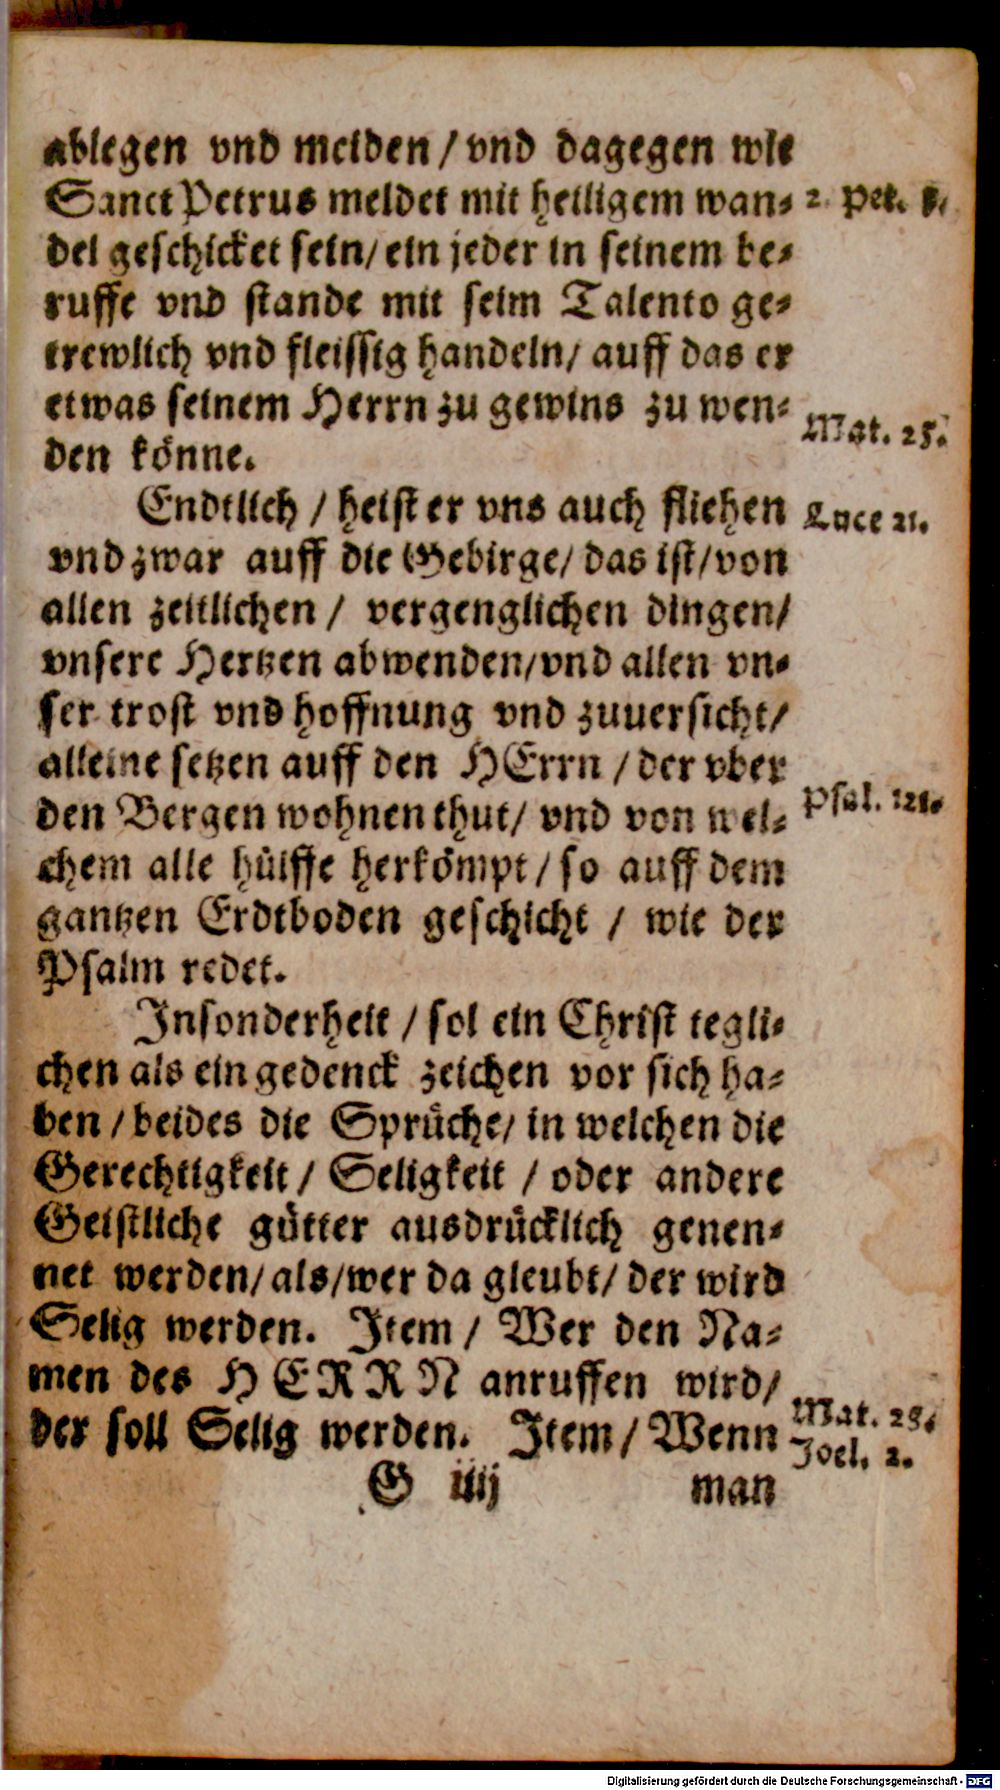 ablegen vnd meiden / vnd dagegen wie
Sanct Petrus meldet mit heiligem wan- 2. Pet.
del geschicket sein / ein jeder in seinem be-
ruffe vnd stande mit seim Talento ge-
trewlich vnd fleissig handeln / auff das er
etwas seinem Herrn zu gewins zu wen- Mat. 25.
den könne.
Endtlich / heist er vns auch fliehen Luce 21.
vnd zwar auff die Gebirge / das ist / von
allen zeitlichen / vergenglichen dingen /
vnsere Hertzen abwenden / vnd allen vn-
ser trost vnd hoffnung vnd zuuersicht /
alleine setzen auff den HErrn / der vber
den Bergen wohnen thut / vnd von wel- Psal. 121.
chem alle hülffe herkömpt / so auff dem
gantzen Erdtboden geschicht / wie der
Psalm redet.
Insonderheit / sol ein Christ tegli-
chen als ein gedenck zeichen vor sich ha-
ben / beides die Sprüche / in welchen die
Gerechtigkeit / Seligkeit / oder andere
Geistliche gütter ausdrücklich genen-
net werden / als / wer da gleubt / der wird
Selig werden. Item / Wer den Na-
men des HERRN anruffen wird / Mat.
der soll Selig werden. Item / Wenn Joel. 2.
G iiij man
Digitalisierung gefördert durch die Deutsche Forschungsgemeinschaft - DFG